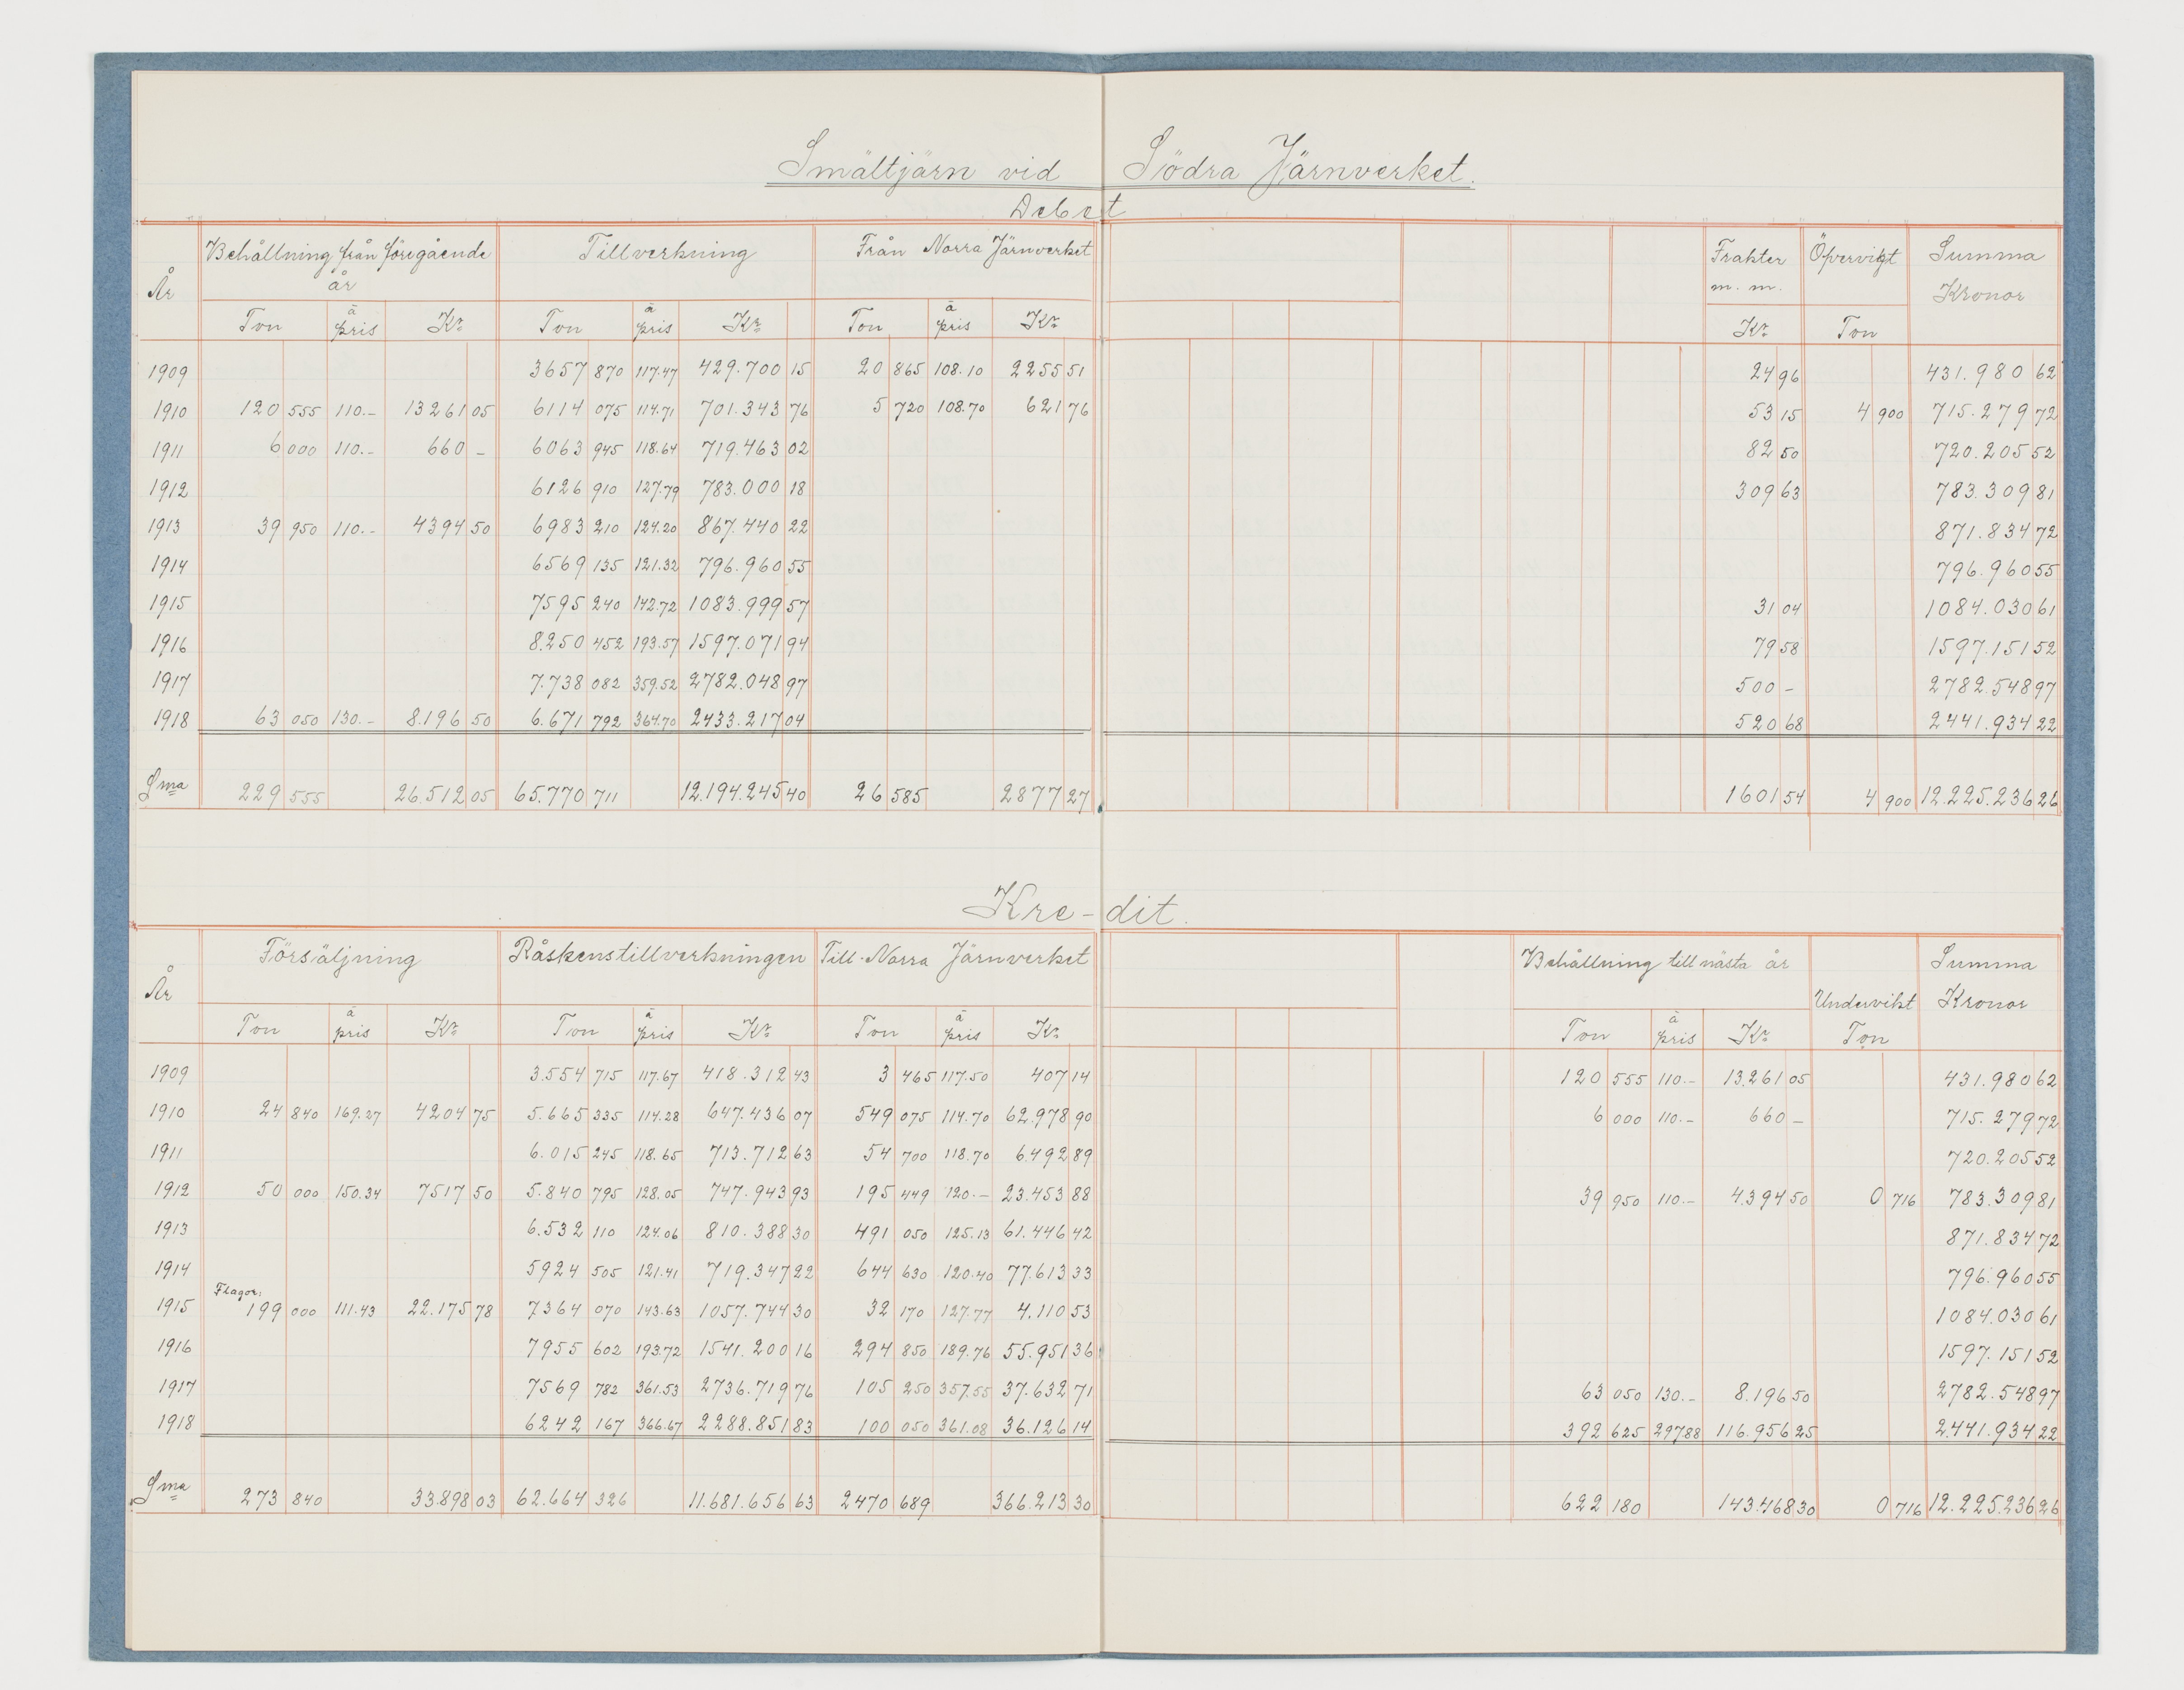 Smältjärn vid Södra Järnverket.
Debet
År Behållning från föregående år Tillverkning Från Norra Järnverket Frakter m. m. Öfvervigt Summa Kronor
Ton à pris Kr Ton à pris Kr Ton à pris Kr Kr Ton
1909 3657 870 117.47 429.700 15 20 865 108.10 2255 51 24 96 431.980 62
1910 120 555 110.- 13261 05 6114 075 114.71 701.343 76 5 720 108.70 621 76 53 15 4 900 715.279 72
1911 6 000 110.- 660 - 6063 945 118.64 719.463 02 82 50 720.205 52
1912 6126 910 127.79 783.000 18 309 63 783.309 81
1913 39 950 110.- 4394 50 6983 210 124.20 867.440 22 871.834 72
1914 6569 135 121.32 796.960 55 796.960 55
1915 7595 240 142.72 1083.999 57 31 04 1084.030 61
1916 8.250 452 193.57 1597.071 94 79 58 1597.151 52
1917 7.738 082 359.52 2782.048 97 500 - 2782.548 97
1918 63 050 130.- 8.196 50 6.671 792 364.70 2433.217 04 520 68 2441.934 22
Sma 229 555 26.512 05 65.770 711 12.194.245 40 26 585 2877 27 1601 54 4 900 12.225.236 26
Kre-dit.
År Försäljning Råskenstillverkningen Till Norra Järnverket Behållning till nästa år Undervikt Summa Kronor
Ton à pris Kr Ton à pris Kr Ton à pris Kr Ton à pris Kr Ton
1909 3.554 715 117.67 418.312 43 3 465 117.50 407 14 120 555 110.- 13.261 05 431.980 62
1910 24 840 169.27 4204 75 5.665 335 114.28 647.436 07 549 075 114.70 62.978 90 6 000 110.- 660 - 715.279 72
1911 6.015 245 118.65 713.712 63 54 700 118.70 6.492 89 720.205 52
1912 50 000 150.34 7517 50 5.840 795 128.05 747.943 93 195 449 120.- 23.453 88 39 950 110.- 4394 50 0 716 783.309 81
1913 6.532 110 124.06 810.388 30 491 050 125.13 61.446 42 871.834 72
1914 5924 505 121.41 719.347 22 644 630 120.40 77.613 33 796.960 55
Flagor:
1915 199 000 111.43 22.175 78 7364 070 143.63 1057.744 30 32 170 127.77 4.110 53 1084.030 61
1916 7955 602 193.72 1541.200 16 294 850 189.76 55.951 36 1597.151 52
1917 7569 782 361.53 2736.719 76 105 250 357.55 37.632 71 63 050 130.- 8.196 50 2782.548 97
1918 6242 167 366.67 2288.851 83 100 050 361.08 36.126 14 392 625 297.88 116.956 25 2.441.934 22
Sma 273 840 33.898 03 62.664 326 11.681.656 63 2470 689 366.213 30 622 180 143.468 30 0 716 12.225.236 26